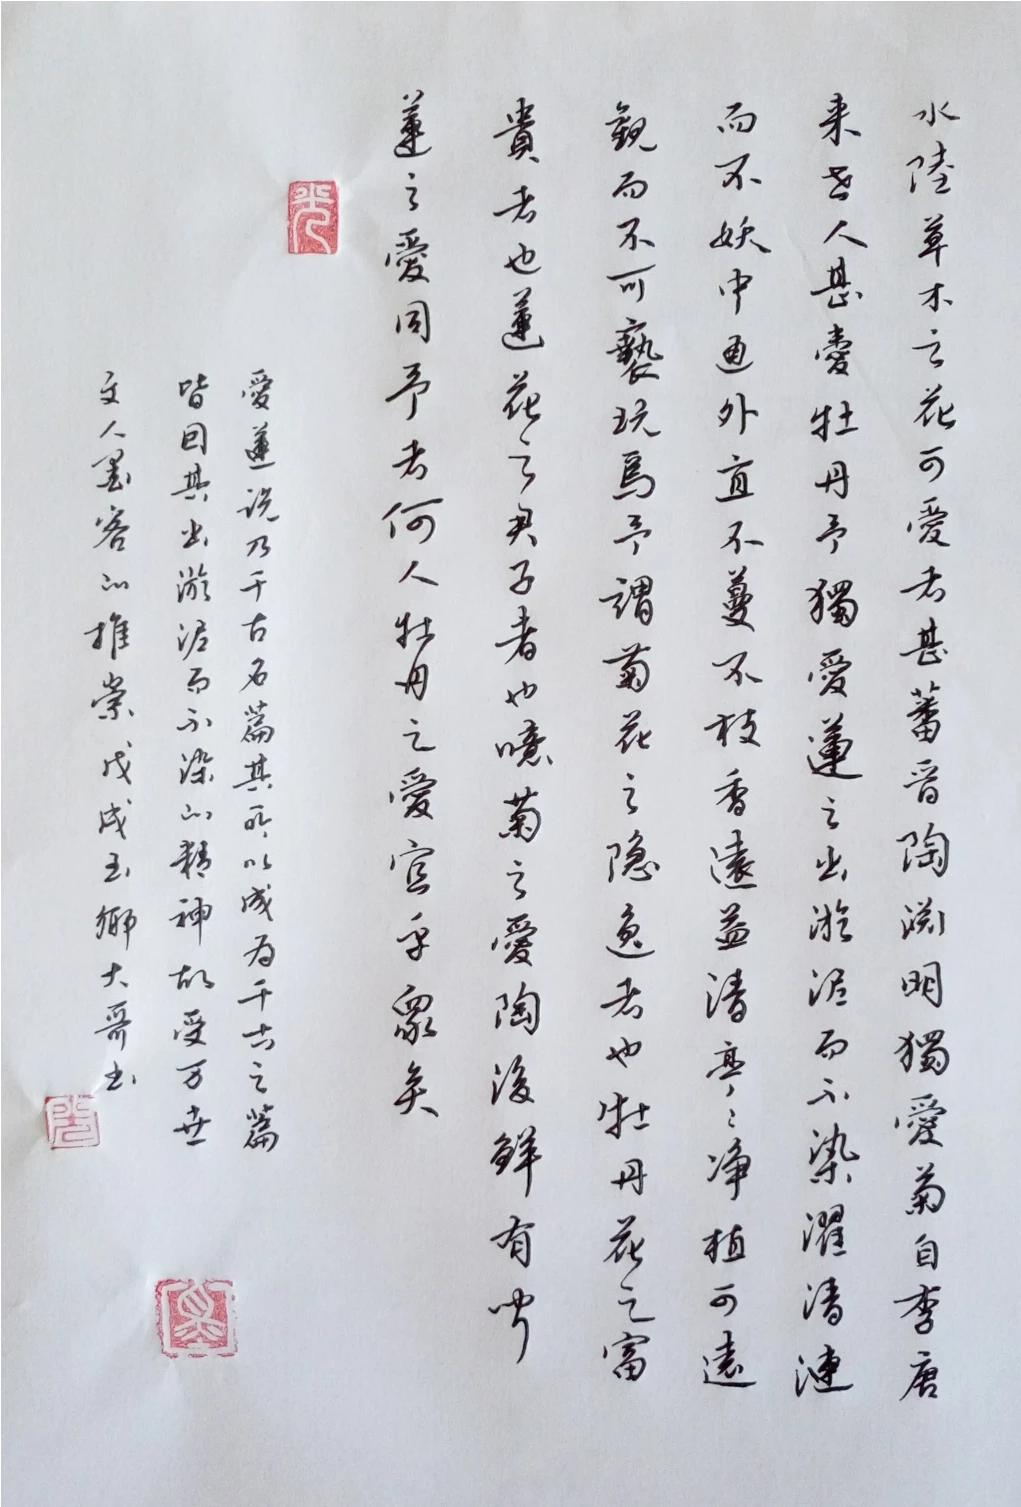 水陸草木之花可愛者甚蕃晋陶渊明獨愛菊自李唐
来世人甚愛牡丹予獨愛蓮之出淤泥而不染濯清漣
而不妖中通外直不蔓不枝香遠益清亭〻净植可遠
觀而不可褻玩焉予謂菊花之隐逸者也牡丹花之富
貴者也蓮花之君子者也噫菊之愛陶後鮮有聞
蓮之愛同予者何人牡丹之愛宜乎衆矣
愛蓮说乃千古名篇其所以成为千古之篇
皆因其出淤泥而不染的精神故受万世
文人墨客的推崇戊戌玉大哥书